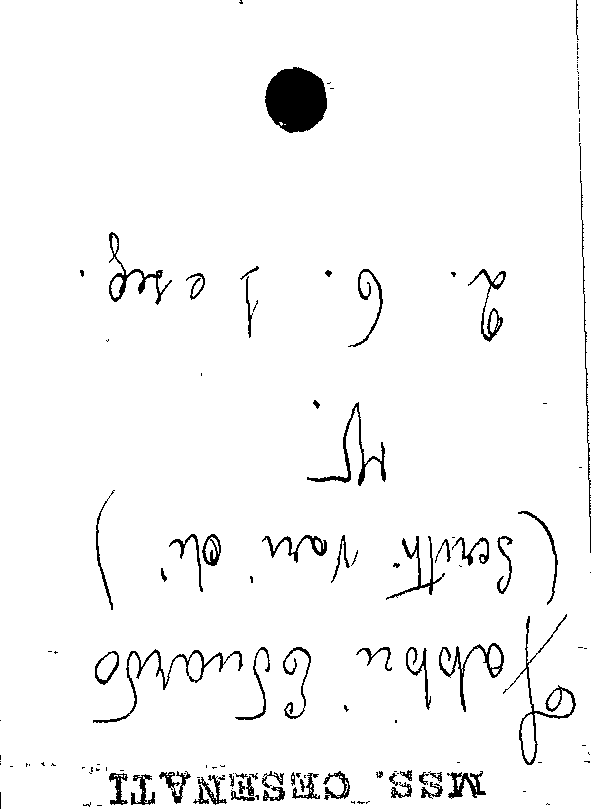 MSS. CESENATI
Fabbri Eduardo
(Scritti vari di)
2. 6. 1 e seg.